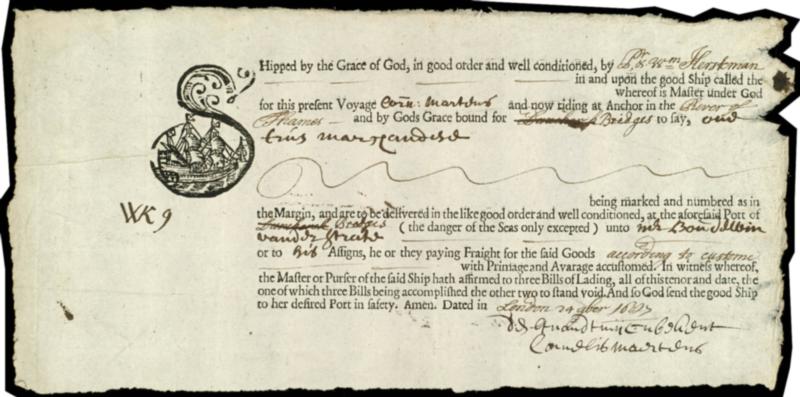 SHipped by the Grace of God, in good order and well conditioned, by Pr. & Wm Herreman
in and upon the good Ship called the
whereof is Master under God
for this present Voyage Corn: Martens and now riding at Anchor in the River of
Thames and by Gods Grace bound for Bridges to say, one
marchandise
being marked and numbred as in
the Margin, and are to be delivered in the like good order and well conditioned, at the aforesaid Port of
WK 9
Bridges (the danger of the Seas only excepted) unto mr Boudewin
vander strate
or to his Assigns, he or they paying Fraight for the said Goods according to custome
with Primage and Avarage accustomed. In witness whereof,
the Master or Purser of the said Ship hath affirmed to three Bills of Lading, all of this tenor and date, the
one of which three Bills being accomplished the other two to stand void. And so God send the good Ship
to her desired Port in safety. Amen. Dated in London 9ber
Cornelis Maertens